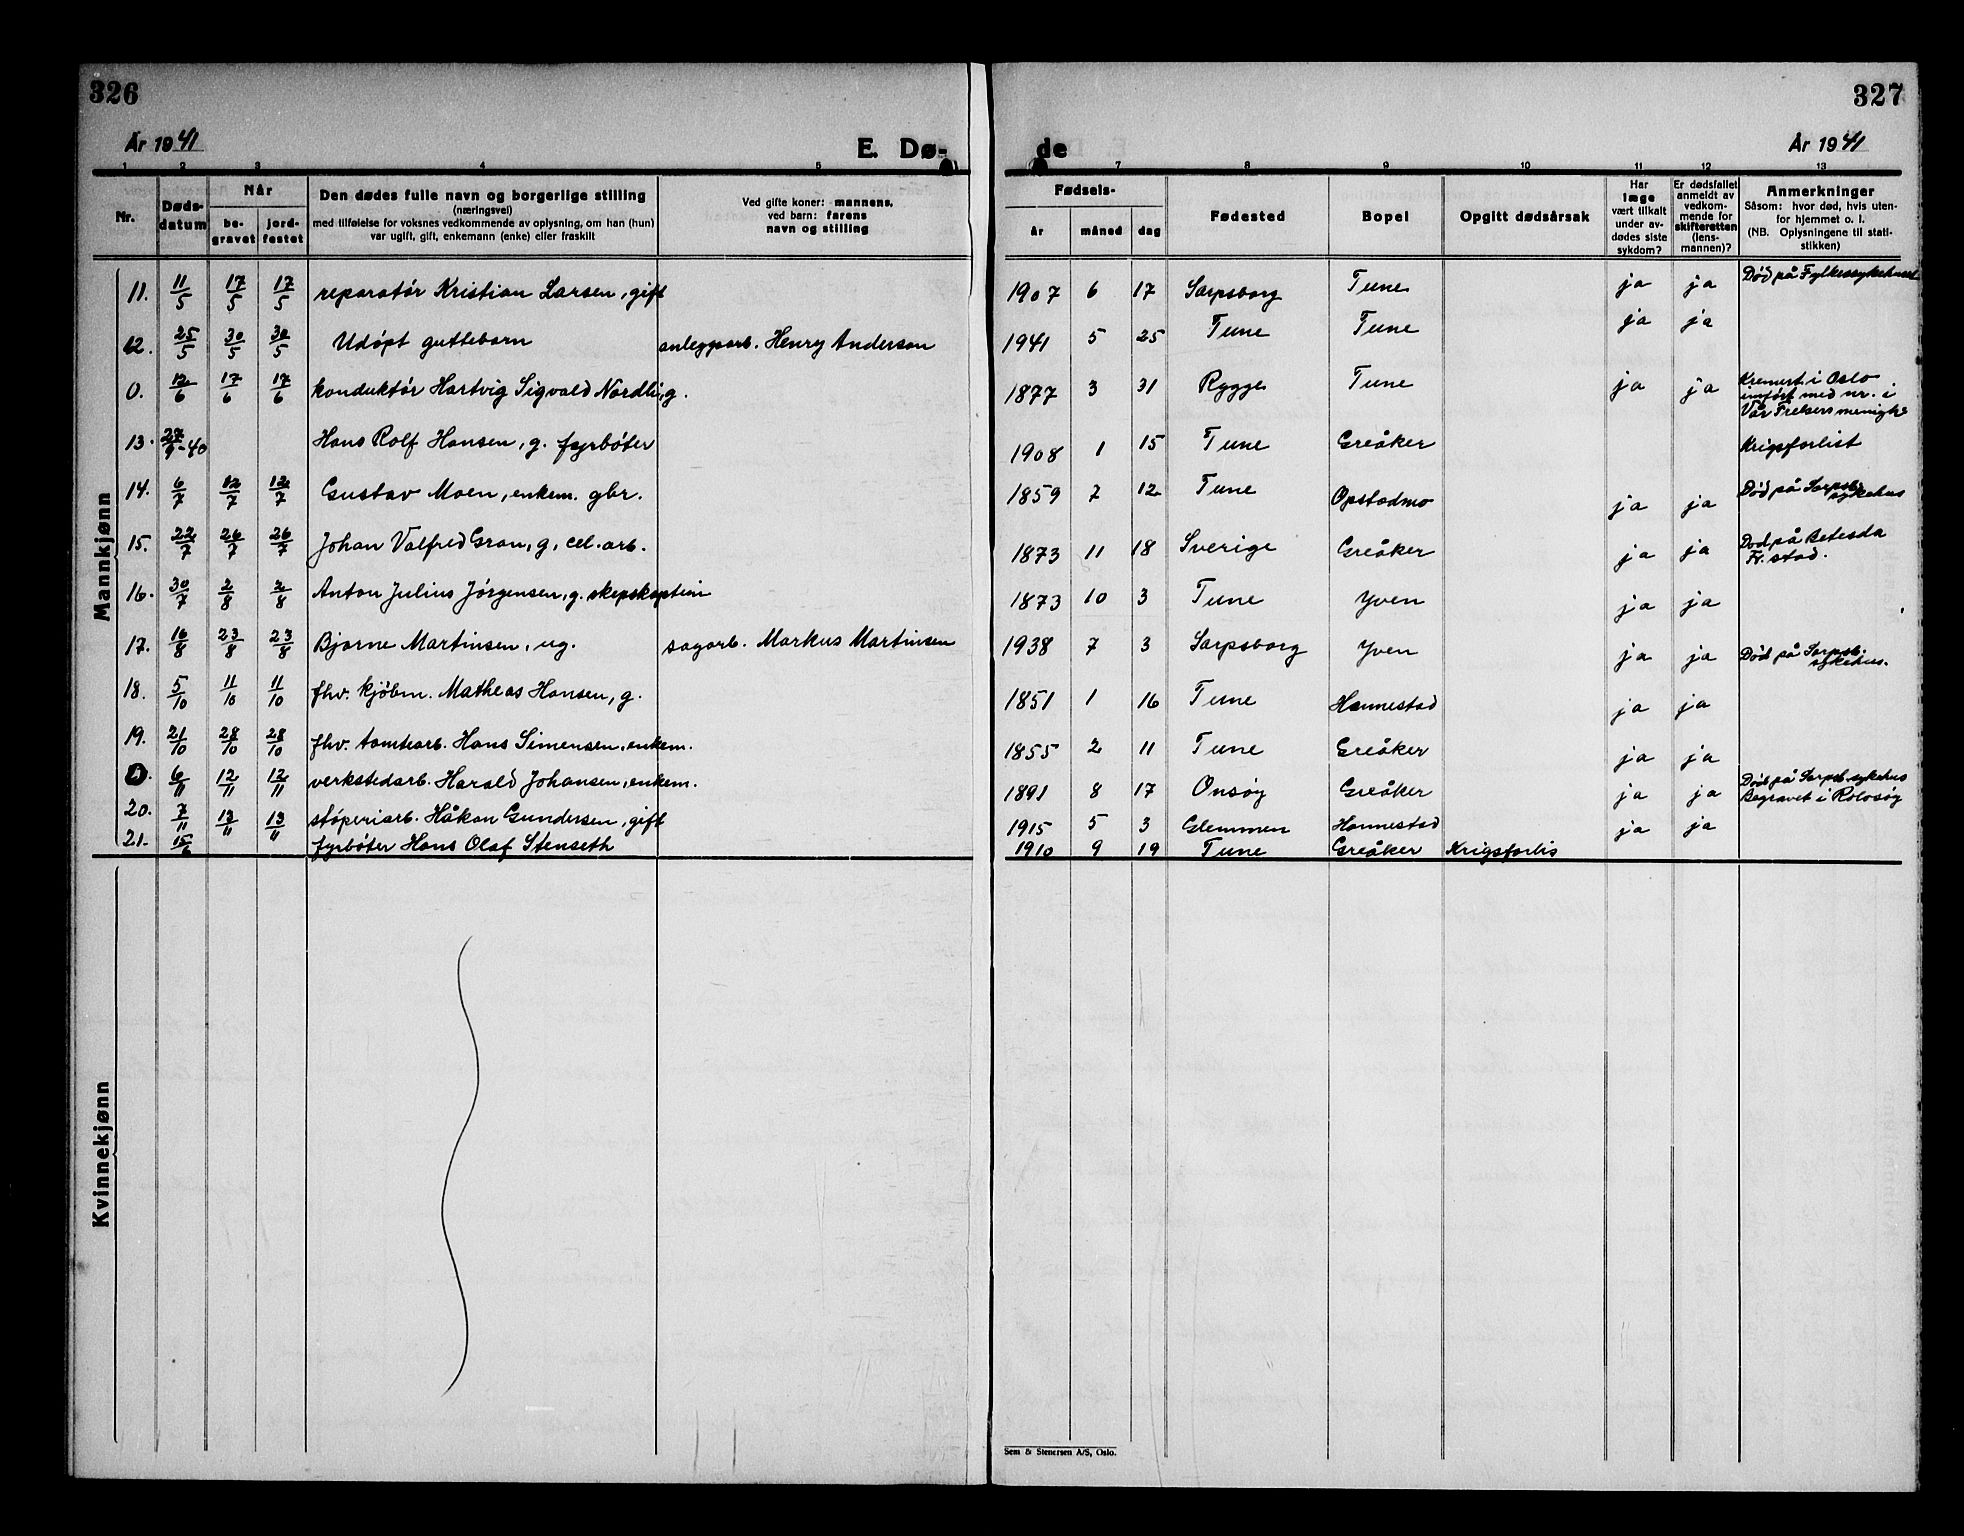 326
327
År 1941
E. Dø-
de
År 1941
1 2 3 4 5 7 8 9 10 11 12 13
Nr.
Døds-
datum
Når
be-
gravet
jord-
festet
Den dødes fulle navn og borgerlige stilling
(næringsvei)
med tilføielse for voksnes vedkommende av oplysning, om han (hun)
var ugift, gift, enkemann (enke) eller fraskilt
Ved gifte koner: mannens,
ved barn: farens
navn og stilling
Fødsels-
år måned dag
Fødested
Bopel
Opgitt dødsårsak
Har
læge
vært tilkalt
under av-
dødes siste
sykdom?
Er dødsfallet
anmeldt av
vedkom-
mende for
skifteretten
(lens-
mannen)?
Anmerkninger
Såsom: hvor død, hvis uten-
for hjemmet o. l.
(NB. Oplysningene til stati-
stikken)
Mannkjønn
11. 11/5 17/5 17/5 reparatør Kristian Larsen, gift 1907 6 17 Sarpsborg Tune ja ja Død på Fylkessykehuset
12. 25/5 30/5 30/5 Udøpt guttebarn anleggsarb. Henry Anderson 1941 5 25 Tune Tune ja ja
0. 12/6 17/6 17/6 konduktør Hartvig Sigvald Nordli, g. 1877 3 31 Rygge Tune ja ja Kremert i Oslo
innført med nr. i
Vår Frelsers menighe
13. 27/9-40 Hans Rolf Hansen, g. fyrbøter 1908 1 15 Tune Greåker Krigsforlist
14. 6/7 12/7 12/7 Gustav Moen, enkem. gbr. 1859 7 12 Tune Opstadmo ja ja Død på Sarpsb.
sykehus
15. 22/7 26/7 26/7 Johan Valfred Gran, g, cel. arb. 1873 11 18 Sverige Greåker ja ja Død på Betesda
Fr. stad.
16. 30/7 2/8 2/8 Anton Julius Jørgensen, g. skepskaptein 1873 10 3 Tune Yven ja ja
17. 16/8 23/8 23/8 Bjarne Martinsen, ug. sagarb. Markus Martinsen 1938 7 3 Sarpsborg Yven ja ja Død på Sarpsb.
sykehus.
18. 5/10 11/10 11/10 fhv. kjøbm. Matheas Hansen, g. 1851 1 16 Tune Hannestad ja ja
19. 21/10 28/10 28/10 fhv. tomtearb. Hans Simensen, enkem. 1855 2 11 Tune Greåker ja ja
0. 6/11 12/11 12/11 verkstedarb. Harald Johansen, enkem. 1891 8 17 Onsøy Greåker ja ja Død på Sarpsb. sykehus
Begravet i Rolvsøy
20. 7/11 13/11 13/11 støperiarb. Håkon Gundersen, gift 1915 5 3 Glemmen Hannestad ja ja
21. 15/6 fyrbøter Hans Olaf Stenseth 1910 9 19 Tune Greåker Krigsforlis
Kvinnekjønn
Sem & Stenersen A/S, Oslo.